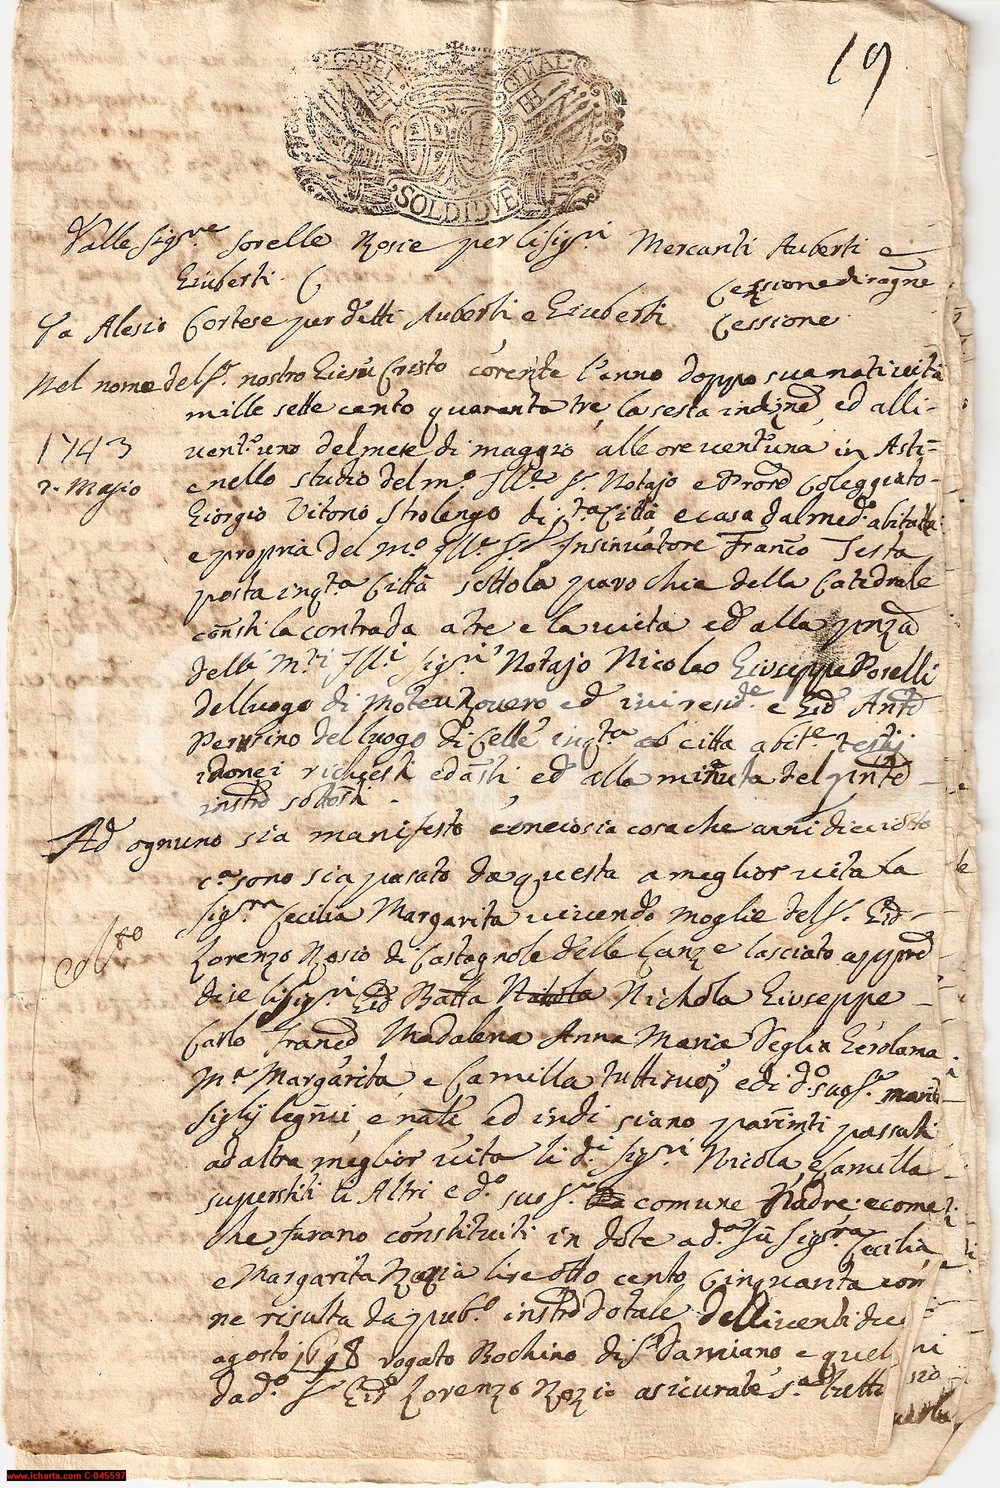 19
GABEL GENAL
SOLDI DVE
Dalle Sig.re sorelle Rosie per li Sig.ri Mercanti Auberti e
Giuberti. Cessione di ragne
Da Alesio Cortese per detti Auberti e Giuberti Cessione
Nel nome del S.r nostro Giesu Cristo corente l'anno doppo sua natività
mille sette cento quaranta tre, la sesta indizne, ed alli
1743
vent'uno del mese di maggio, alle ore vent'una, in Asti
Majo
e nello studio del m.o Ill.e S.r Notajo e Prore Coleggiato
Giorgio Vitorio Strolengo di q.ta Città e casa dal med.o abitata
e propria del m.o Ill.e Sr Insinuatore Franc.o Testa
posta in q.ta Città sotto la parochia della Catedrale
consti la contrada a tre e la victa ed alla pnza
delli m.ti Ill.i Sig.ri Notajo Nicolao Giuseppe Poselli
del luogo di Moteu Rouero ed ivi resid.e e Gio Ant.o
Perrino del luogo di Celle in q.ta città abit.e testij
idonei richiesti ed asti, ed alla minuta del pnte
instro sottosti.
Ad ognuno sia manifesto come cosia cosa che anni dieciotto
c.a sono sia pasato da questa a meglior vita la
Sig.ra Cecilia Margarita vivendo moglie del S. Gio
Lorenzo Rosio di Castagnole delle Lanze lasciato appo
di se li Sig.ri Gio Batta Nichola Giuseppe
Carlo Franco Madalena Anna Maria Deglia Gerolama
M.a Margarita e Camilla tutti suoi e di d.o suo S.r marito
figlij legmi, e nati ed indi siano parimti passati
ad altra meglior vita li d.i Sig.ri Nicola, e Camilla
superstiti li Altri e d.o suo S.r comune Padre e come
che furano constituiti in dote a d.a fu Sig.ra Cecilia
e Margarita Rozia lire otto cento cinquanta com
ne risulta da pub.o instro dotale delli venti due
agosto 1698 rogato Bochino di S. Damiano e quel
da d.o Sr Gio Lorenzo Rozio asicurate s.a tutti